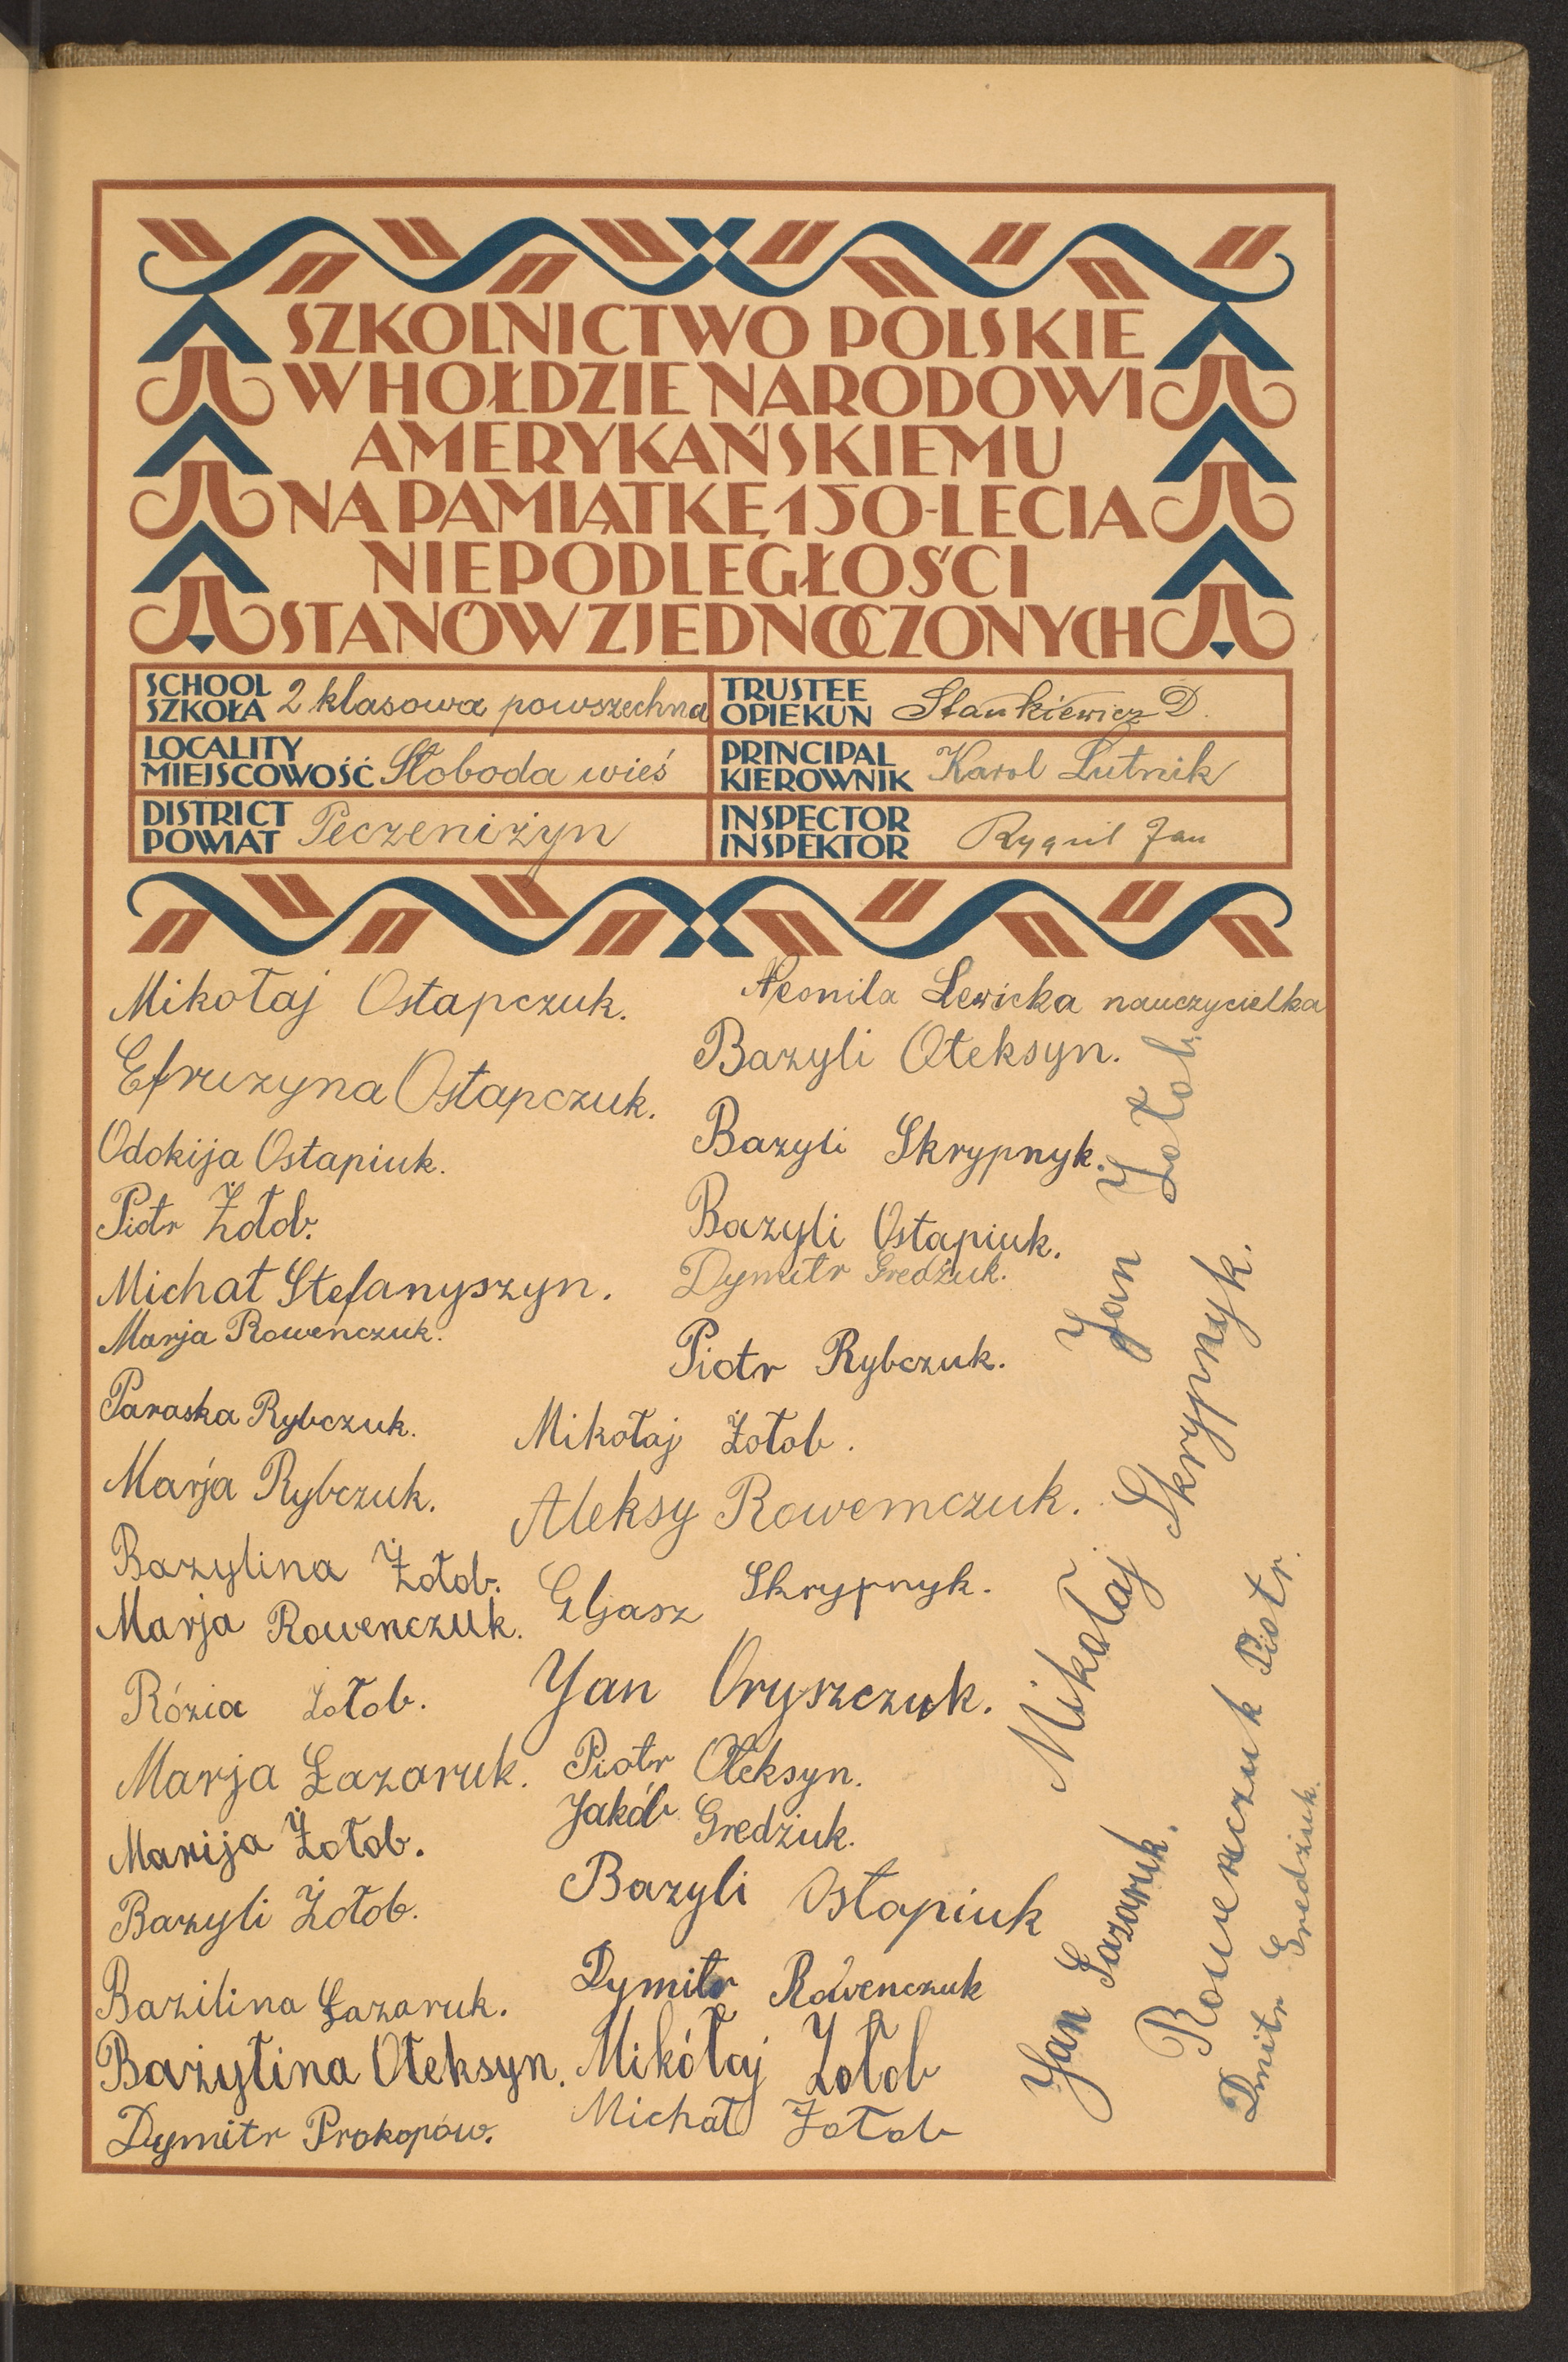 SZKOLNICTWO POLSKIE
W HOŁDZIE NARODOWI
AMERYKAŃSKIEMU
NA PAMIĄTKĘ 150-LECIA
NIEPODLEGŁOŚCI
STANÓW ZJEDNOCZONYCH
SCHOOL
SZKOŁA 2 klasowa powszechna
TRUSTEE
OPIEKUN Stankiewicz D.
LOCALITY
MIEJSCOWOŚĆ Słoboda wieś
PRINCIPAL
KIEROWNIK Karol Lutnik
DISTRICT
POWIAT Peczeniżyn
INSPECTOR
INSPEKTOR Jan
Mikołaj Ostapczuk.
Efruzyna Ostapczuk.
Odokija Ostapiuk.
Piotr Żołob.
Michał Stefanyszyn.
Marja Rowenczuk.
Paraska Rybczuk.
Marja Rybczuk.
Bazylina Żołob.
Marja Rowenczuk.
Rózia Żołob.
Marja Łazaruk.
Marija Żołob.
Bazyli Żołob.
Bazilina Łazaruk.
Bażyłina Ołeksyn.
Dymitr Prokopów.
Neonila Lewicka nauczycielka
Bazyli Ołeksyn.
Bazyli Skrypnyk.
Bazyli Ostapiuk.
Dymitr Gredżuk.
Piotr Rybczuk.
Mikołaj Żołob.
Aleksy Rowemczuk.
Eljasz Skrypnyk.
Jan Oryszczuk.
Piotr Ołeksyn.
Jakób Gredziuk.
Bazyli Ostapiuk
Dymitr Rowenczuk
Mikółaj Żołob
Michał Żołob
Jan Żołob.
Mikołaj Skrypnyk.
Jan Łazaruk.
Rowenczuk Piotr.
Dmitr Gredziuk.